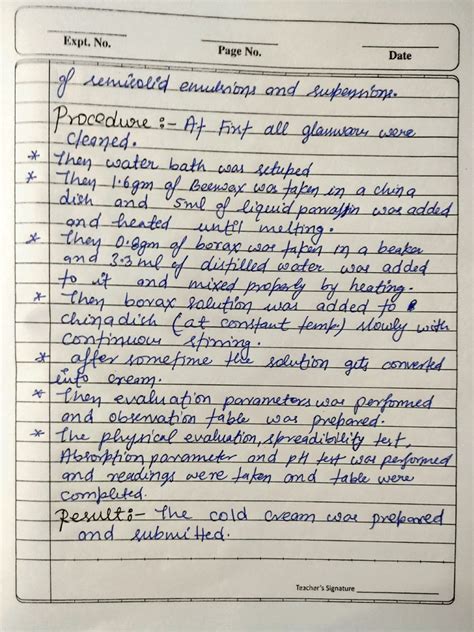 Expt. No.
Page No.
Date
of semisolid emulsions and suspensions.
Procedure :- At First all glassware were
cleaned.
* Then water bath was setuped
* Then 1.6gm of Beewax was taken in a china
dish and 5ml of liquid paraffin was added
and heated until melting.
* Then 0.8gm of borax was taken in a beaker
and 3.3 ml of distilled water was added
to it and mixed properly by heating.
* Then borax solution was added to
chinadish (at constant temp) slowly with
continuous stirring.
* after sometime the solution gets converted
into cream.
* Then evaluation parameters was performed
and observation table was prepared.
* The physical evaluation, spreadibility test,
Absorption parameter and pH test was performed
and readings were taken and table were
completed.
Result:- The cold cream was prepared
and submitted.
Teacher's Signature